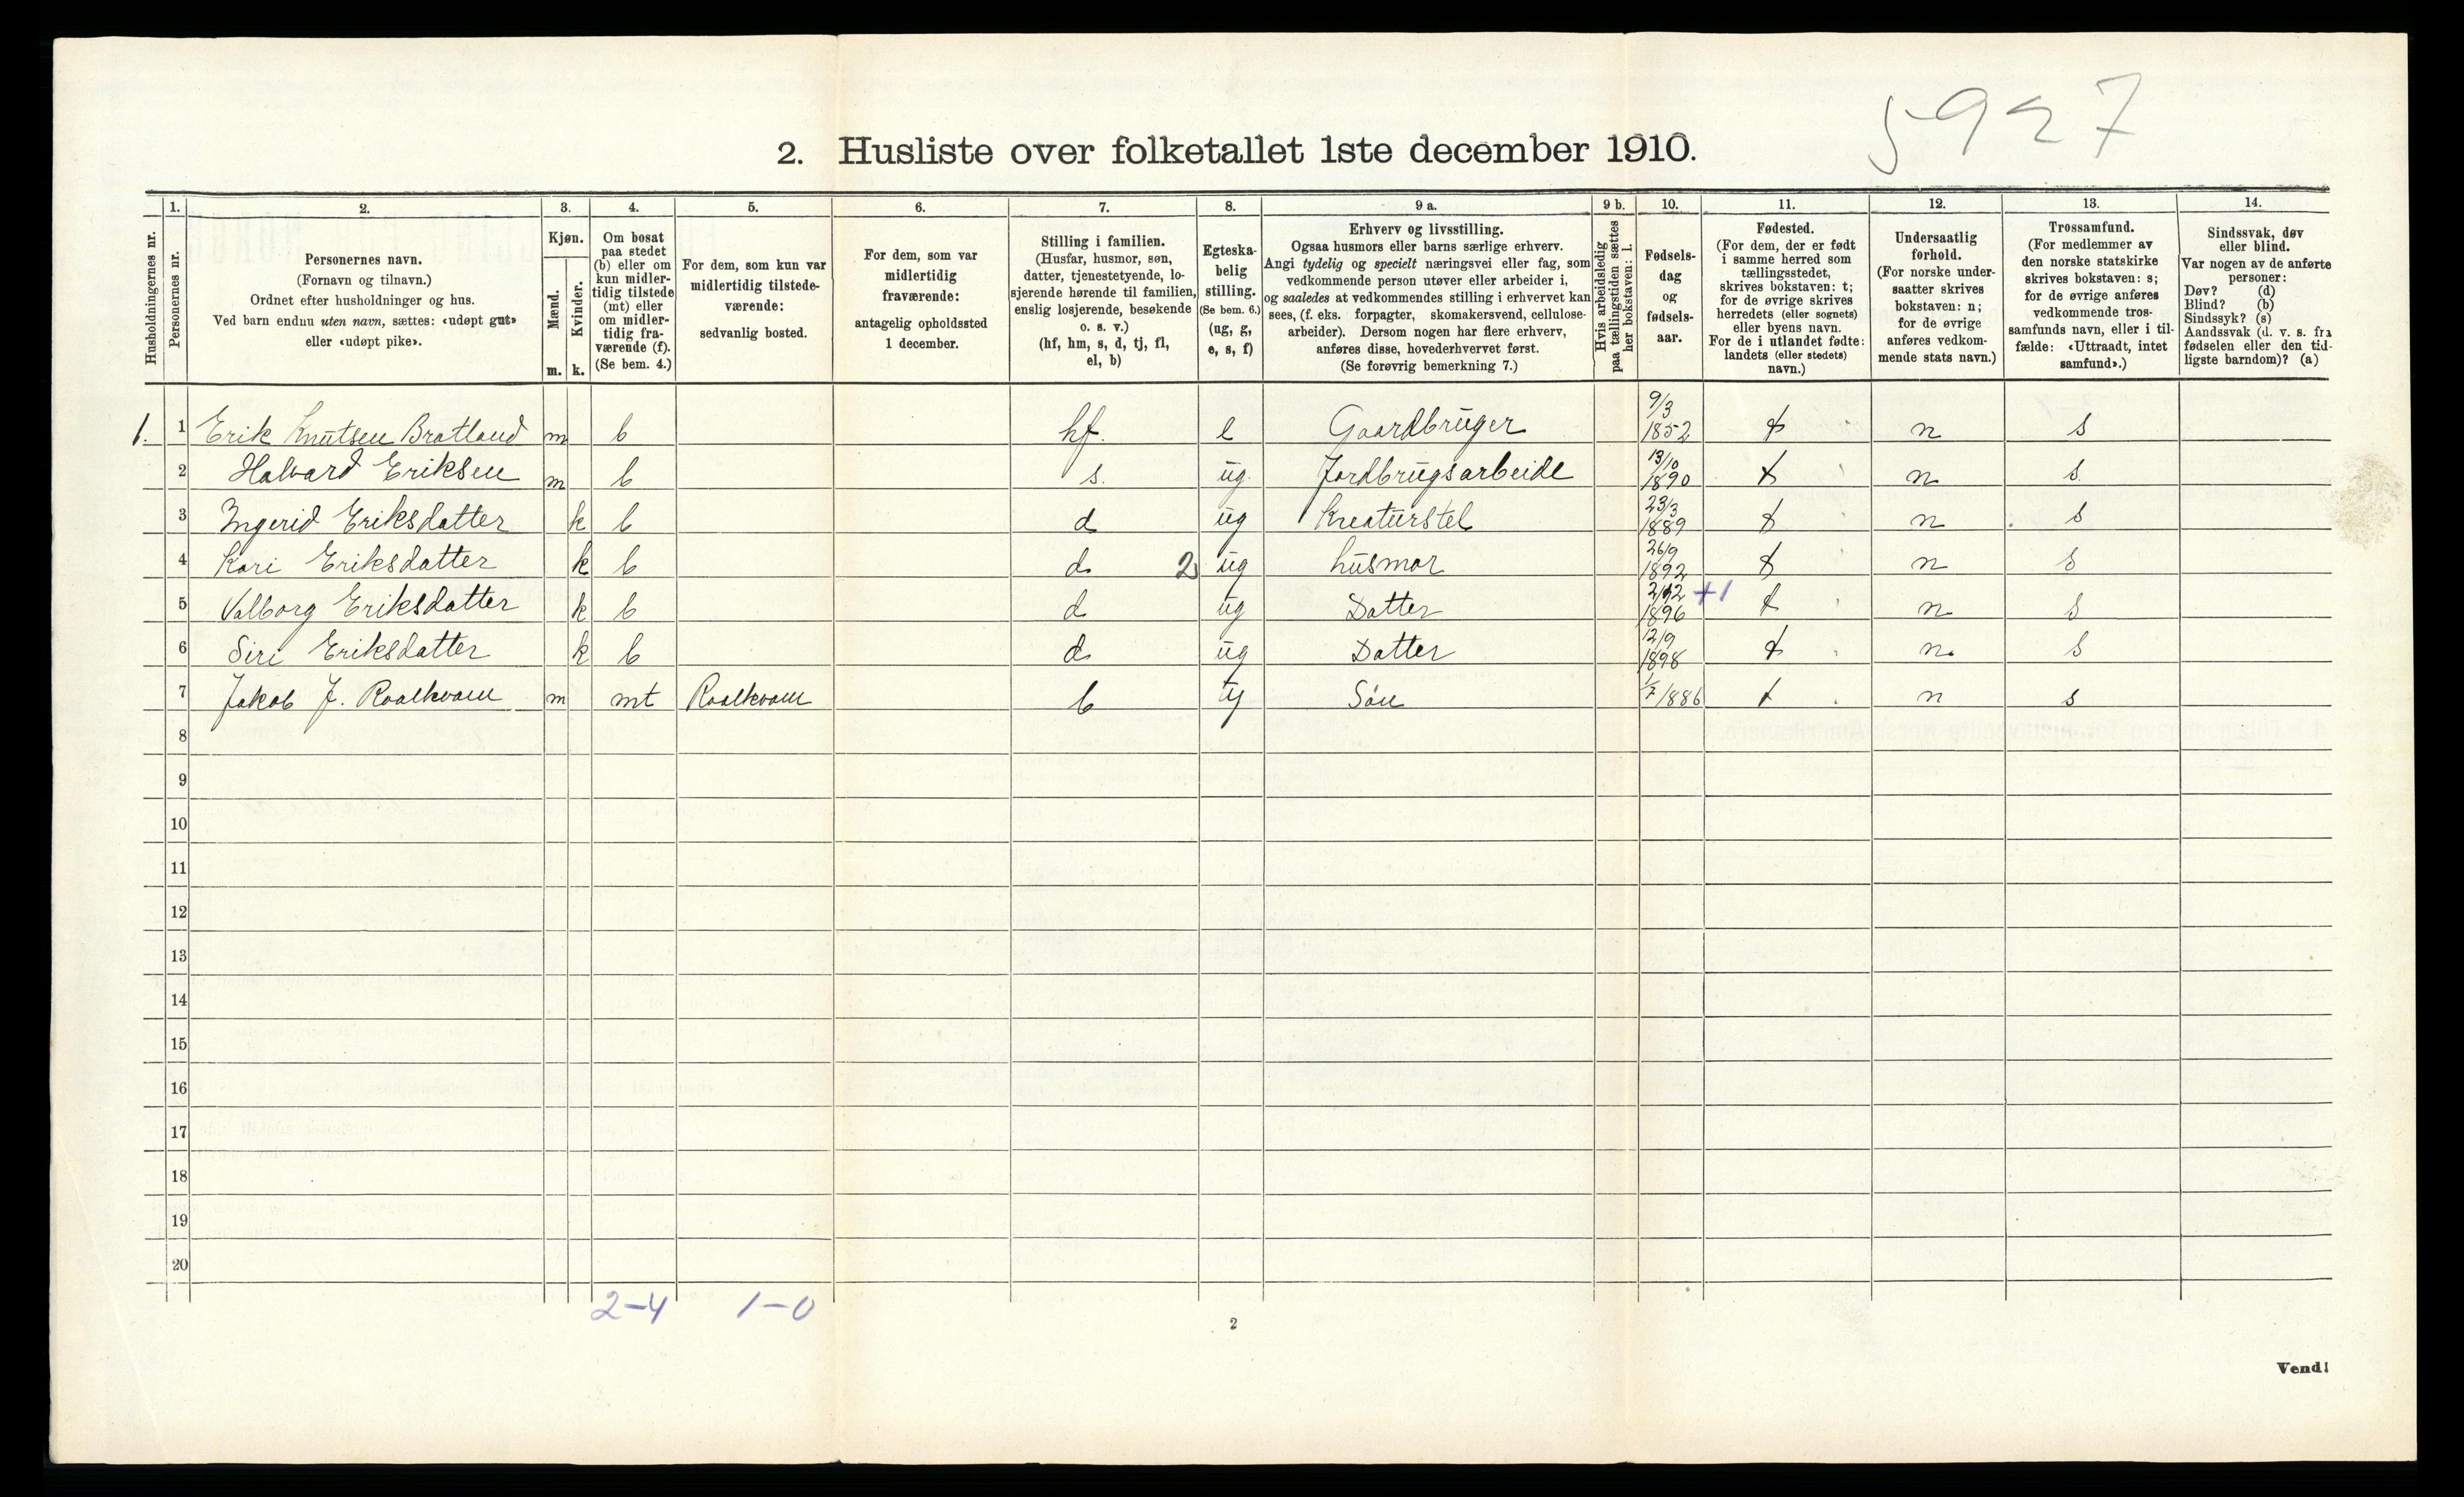 5927
2. Husliste over folketallet 1ste december 1910.
Husholdningernes nr.
1. Personernes nr.
2. Personernes navn.
(Fornavn og tilnavn.)
Ordnet efter husholdninger og hus.
Ved barn endnu uten navn, sættes: «udøpt gut»
eller «udøpt pike».
3. Kjøn.
Mænd. Kvinder.
m. k.
4. Om bosat
paa stedet
(b) eller om
kun midler-
tidig tilstede
(mt) eller
om midler-
tidig fra-
værende (f).
(Se bem. 4.)
5. For dem, som kun var
midlertidig tilstede-
værende:
sedvanlig bosted.
6. For dem, som var
midlertidig
fraværende:
antagelig opholdssted
1 december.
7. Stilling i familien.
(Husfar, husmor, søn,
datter, tjenestetyende, lo-
sjerende hørende til familien,
enslig losjerende, besøkende
o. s. v.)
(hf, hm, s, d, tj, fl,
el, b)
8. Egteska-
belig
stilling.
(Se bem. 6.)
(ug, g,
e, s, f)
9 a. Erhverv og livsstilling.
Ogsaa husmors eller barns særlige erhverv.
Angi tydelig og specielt næringsvei eller fag, som
vedkommende person utøver eller arbeider i,
og saaledes at vedkommendes stilling i erhvervet kan
sees, (f. eks. forpagter, skomakersvend, cellulose-
arbeider). Dersom nogen har flere erhverv,
anføres disse, hovederhvervet først.
(Se forøvrig bemerkning 7.)
9 b. Hvis arbeidsledig
paa tællingstiden sættes
her bokstaven: l.
10. Fødsels-
dag
og
fødsels-
aar.
11. Fødested.
(For dem, der er født
i samme herred som
tællingsstedet,
skrives bokstaven: t;
for de øvrige skrives
herredets (eller sognets)
eller byens navn.
For de i utlandet fødte:
landets (eller stedets)
navn.)
12. Undersaatlig
forhold.
(For norske under-
saatter skrives
bokstaven: n;
for de øvrige
anføres vedkom-
mende stats navn.)
13. Trossamfund.
(For medlemmer av
den norske statskirke
skrives bokstaven: s;
for de øvrige anføres
vedkommende tros-
samfunds navn, eller i til-
fælde: «Uttraadt, intet
samfund».)
14. Sindssvak, døv
eller blind.
Var nogen av de anførte
personer:
Døv? (d)
Blind? (b)
Sindssyk? (s)
Aandssvak (d. v. s. fra
fødselen eller den tid-
ligste barndom)? (a)
1. 1 Erik Knutsen Bratland m b hf. e Gaardbruger 9/3 1852 t n s
2 Halvard Eriksen m b s. ug. Jordbrugsarbeide 13/10 1890 t n s.
3 Ingerid Eriksdatter k b d ug Kreaturstel 23/3 1889 t n s
4 Kari Eriksdatter k b d. 2 ug husmor 26/9 1892 t n s
5 Valborg Eriksdatter k b d ug Datter 2/12 1896 +1 t n s
6 Siri Eriksdatter k b d ug Datter 12/9 1898 t n. s
7 Jakob J. Roalkvam m mt Roalkvam b ug Søn 1/7 1886 t n s
8
9
10
11
12
13
14
15
16
17
18
19
20
2-4 1-0
2
Vend!